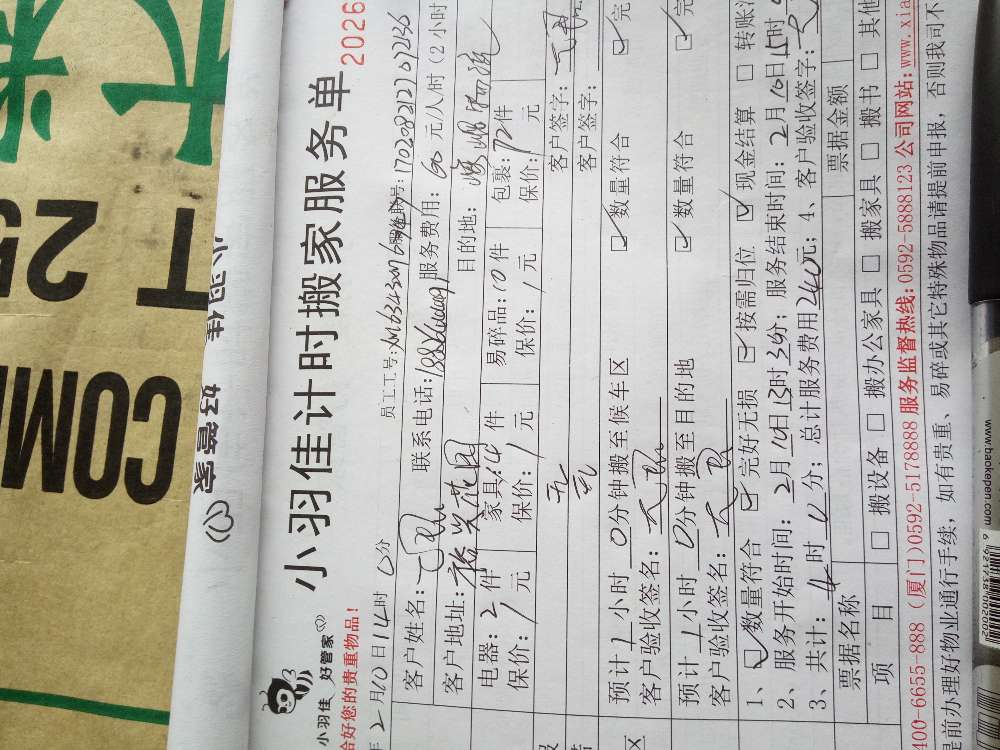 小羽佳 好管家
小羽佳计时搬家服务单
2026
恰好您的贵重物品!
年2月10日14时0分
员工工号:
号:170208121201236
客户姓名:
联系电话:
服务费用:60元/人/时(2小时
客户地址:裕兴花园
目的地:
电器:2件
家具:14件
易碎品:10件
包裹:72件
保价:1元
保价:1元
保价:1元
保价:1元
元
客户签字:
元
客户签字:
预计1小时0分钟搬至候车区
数量符合
完
客户验收签名:
预计1小时0分钟搬至目的地
数量符合
完
客户验收签名:
1、数量符合 完好无损 按需归位 现金结算 转账
2、服务开始时间:2月10日13时3分; 服务结束时间:2月10日15时
3、共计:4时0分; 总计服务费用240元; 4、客户验收签字:
票据名称
票据金额
项目
搬设备 搬办公家具 搬家具 搬书 其他
400-6655-888(厦门)0592-5178888 服务监督热线:0592-5888123 公司网站:www.xia
是前办理好物业通行手续,如有贵重、易碎或其它特殊物品请提前申报,否则我司不
小羽佳 好管家
T 25
COM
www.baokepen.com